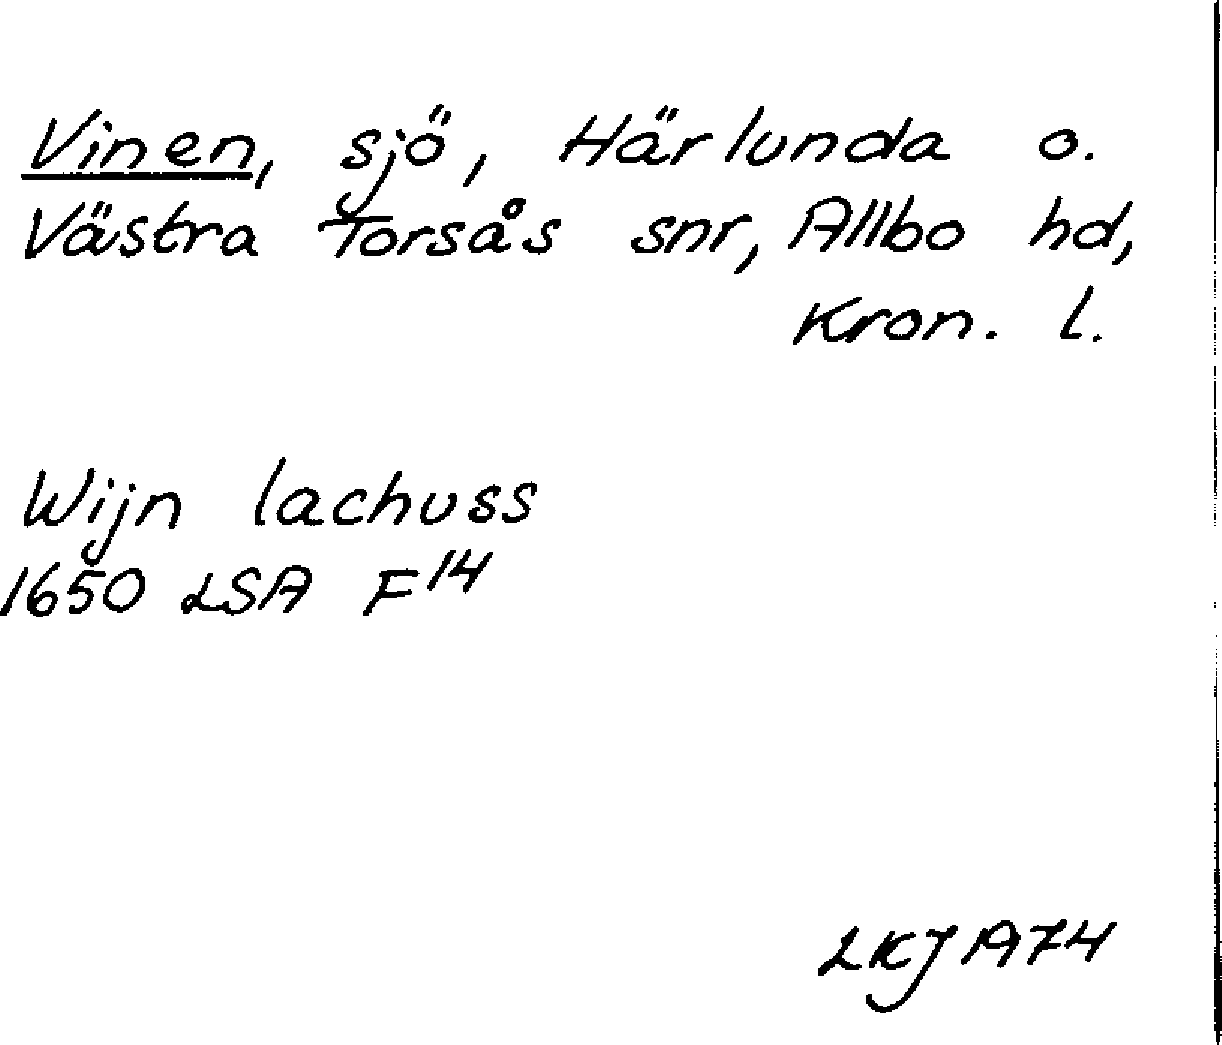 Vinen, sjö, Härlunda o.
Västra Torsås snr, Allbo hd,
Kron. l.
Wijn lachuss
1650 LSA F14
LKJ 1974